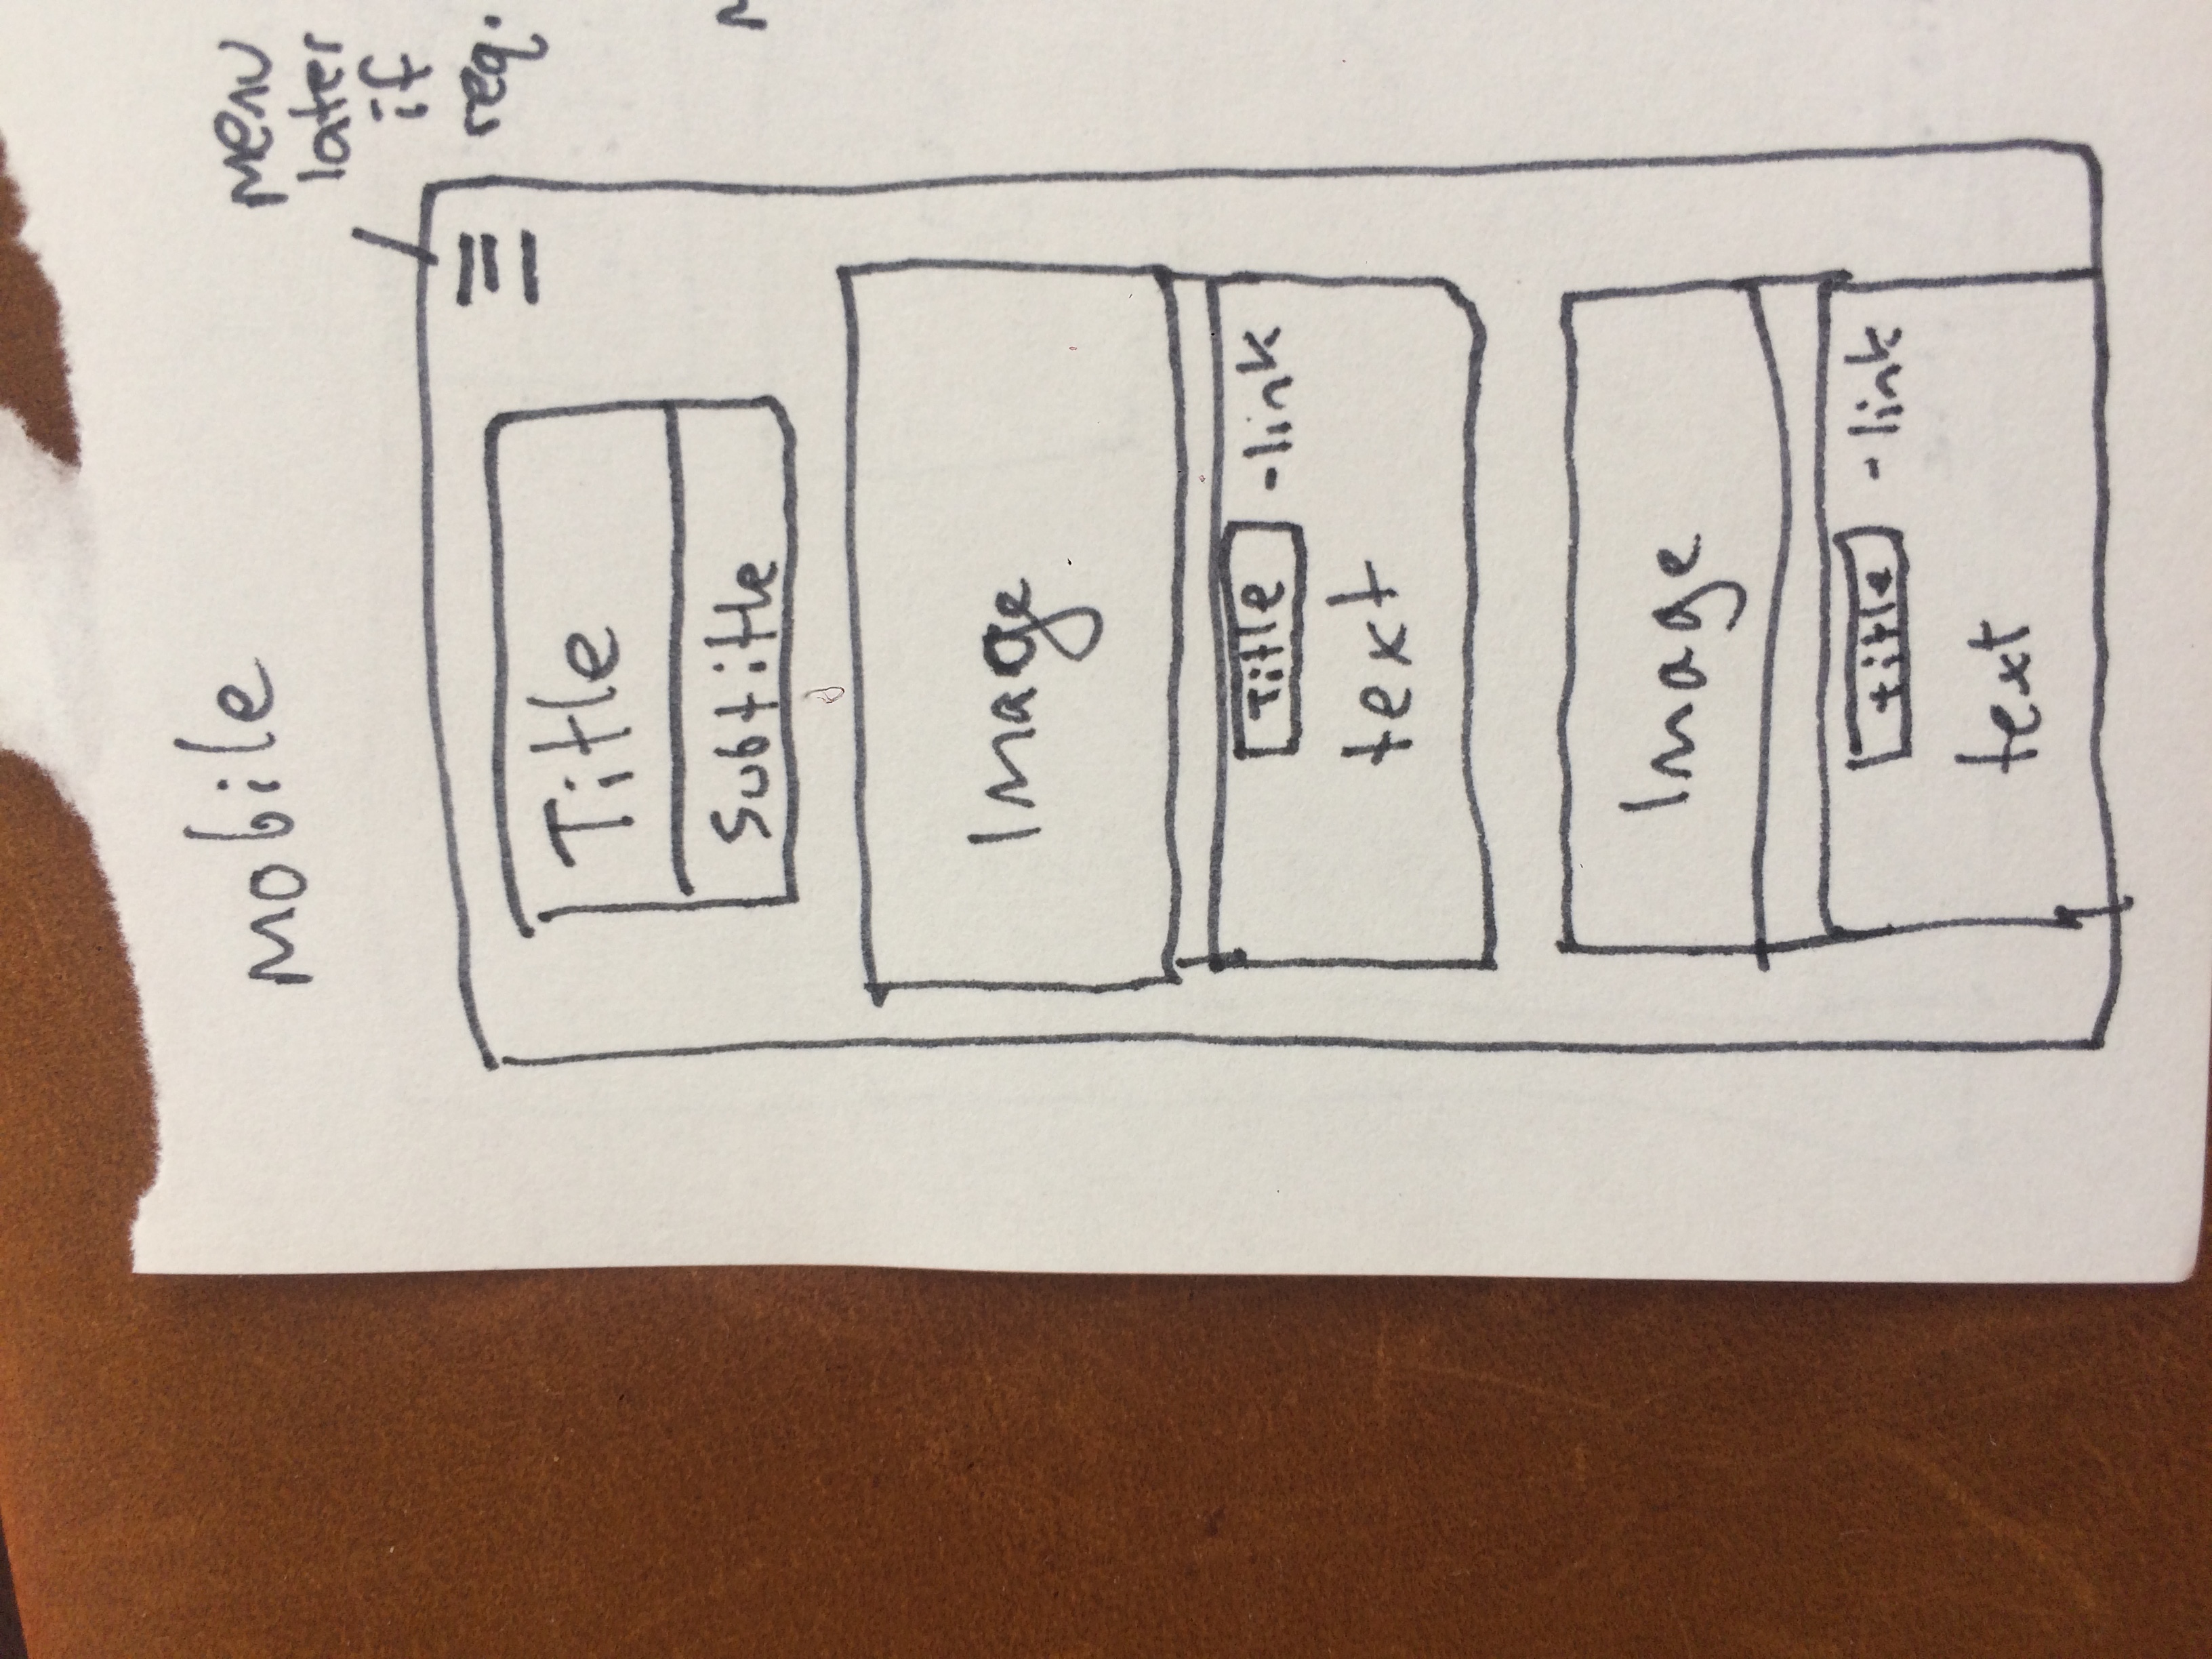 Mobile
Menu
later
if
req.
Title
Subtitle
Image
Title -link
text
Image
title -link
text